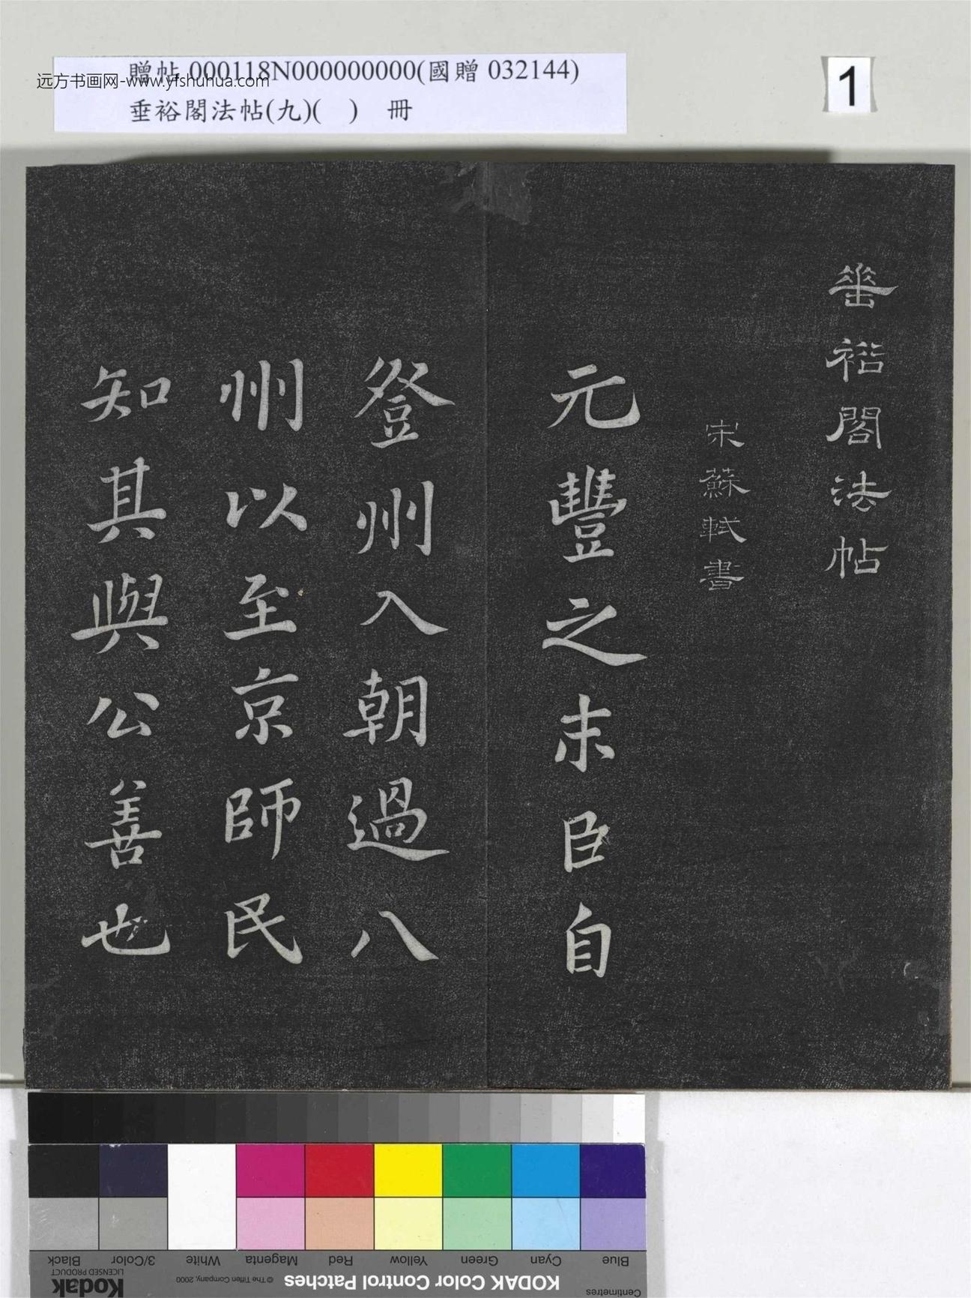 贈帖 000118N000000000(國贈 032144)
垂裕閣法帖(九)( ) 冊
远方书画网-www.yfshuhua.com
1
垂裕閣法帖
宋蘇軾書
元豐之末臣自
登州入朝過八
州以至京師民
知其與公善也
Blue Cyan Green Yellow Red Magenta White 3/Color Black
KODAK Color Control Patches
© The Tiffen Company, 2000
Kodak
LICENSED PRODUCT
Centimetres